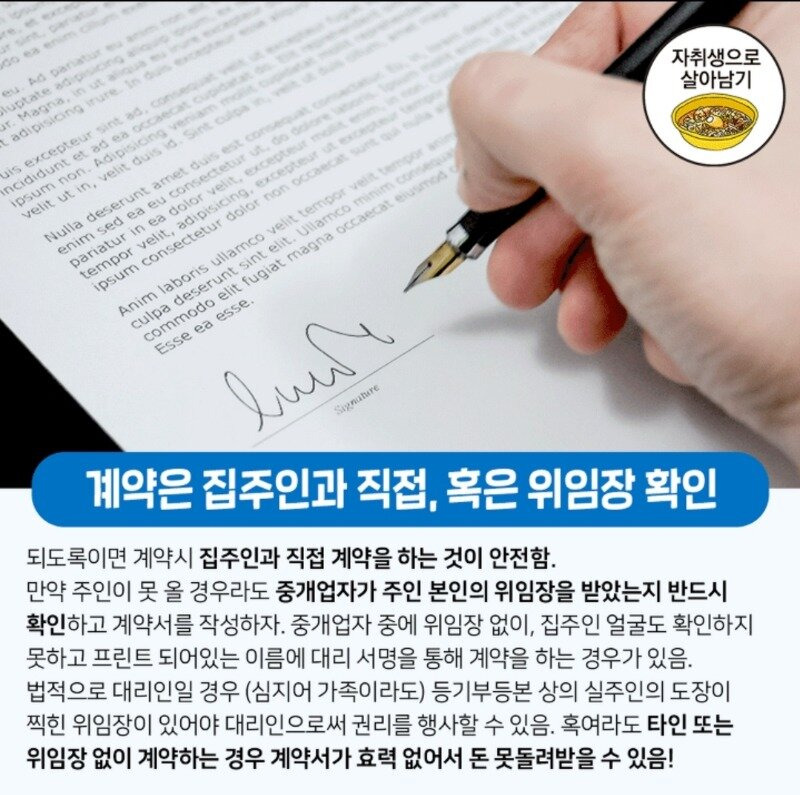 eu. Ad pariatur eu anim non elit
자취생으로
살아남기
Nulla deserunt amet duis est
Anim laboris ullamco velit tempor velit
culpa deserunt sint elit. Ullamco minim
commodo elit fugiat magna occaecat
Esse ea esse.
Signature
계약은 집주인과 직접, 혹은 위임장 확인
되도록이면 계약시 집주인과 직접 계약을 하는 것이 안전함.
만약 주인이 못 올 경우라도 중개업자가 주인 본인의 위임장을 받았는지 반드시
확인하고 계약서를 작성하자. 중개업자 중에 위임장 없이, 집주인 얼굴도 확인하지
못하고 프린트 되어있는 이름에 대리 서명을 통해 계약을 하는 경우가 있음.
법적으로 대리인일 경우 (심지어 가족이라도) 등기부등본 상의 실주인의 도장이
찍힌 위임장이 있어야 대리인으로써 권리를 행사할 수 있음. 혹여라도 타인 또는
위임장 없이 계약하는 경우 계약서가 효력 없어서 돈 못돌려받을 수 있음!